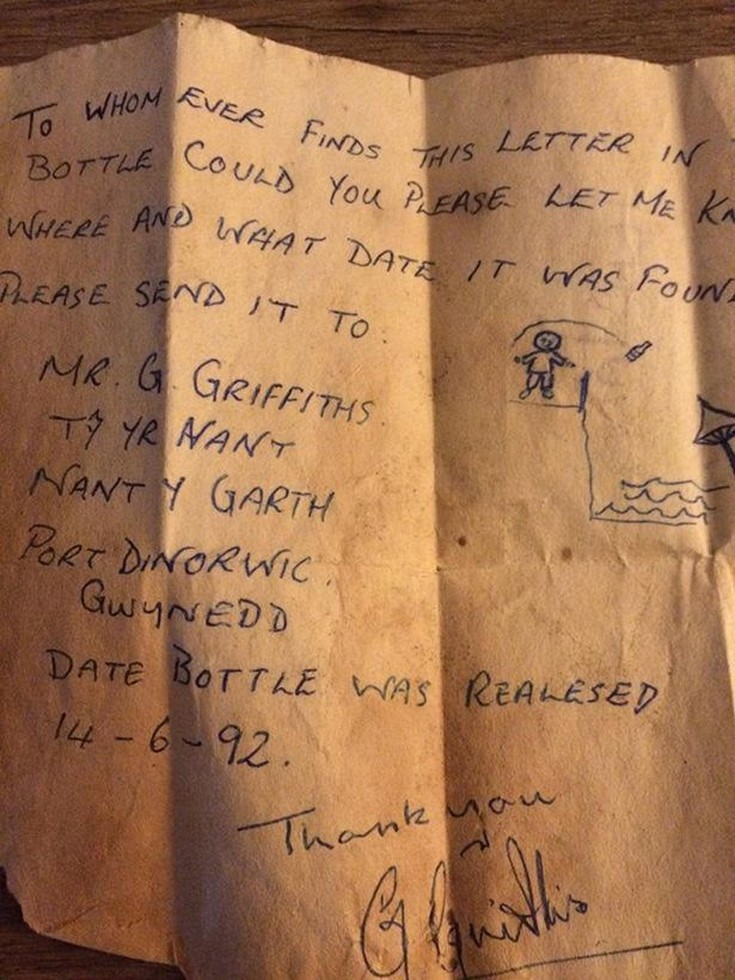 TO WHOM EVER FINDS THIS LETTER IN
BOTTLE COULD YOU PLEASE LET ME KN
WHERE AND WHAT DATE IT WAS FOUND
PLEASE SEND IT TO.
MR. G. GRIFFITHS.
TŶ YR NANT
NANT Y GARTH
PORT DINORWIC.
GWYNEDD
DATE BOTTLE WAS REALESED
14-6-92.
Thank you
G Griffiths